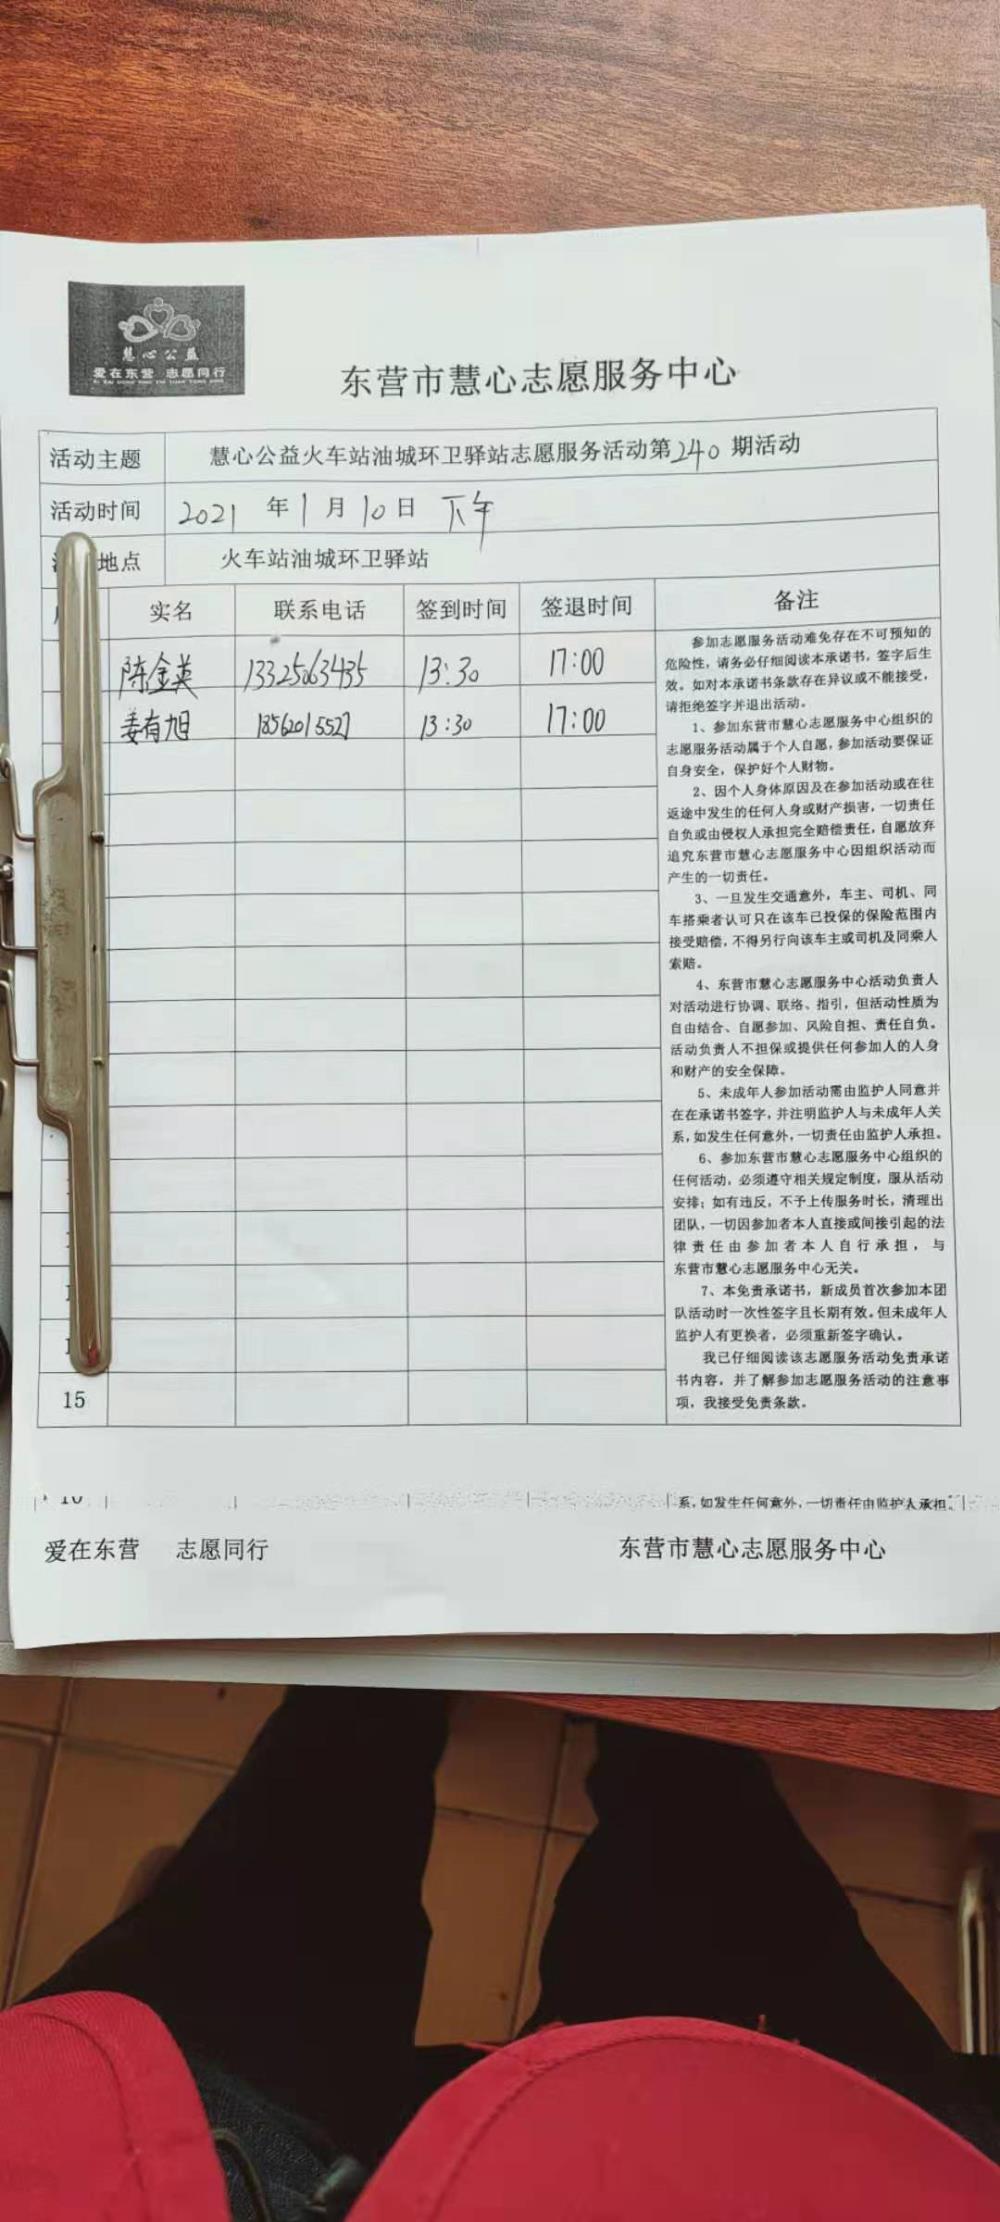 慧心公益
爱在东营 志愿同行
东营市慧心志愿服务中心
活动主题 慧心公益火车站油城环卫驿站志愿服务活动第240期活动
活动时间 2021年1月10日 下午
地点 火车站油城环卫驿站
实名 联系电话 签到时间 签退时间 备注
陈金英 13325063435 13:30 17:00
姜有旭 18562015527 13:30 17:00
15
参加志愿服务活动难免存在不可预知的
危险性，请务必仔细阅读本承诺书，签字后生
效。如对本承诺书条款存在异议或不能接受，
请拒绝签字并退出活动。
1、参加东营市慧心志愿服务中心组织的
志愿服务活动属于个人自愿，参加活动要保证
自身安全，保护好个人财物。
2、因个人身体原因及在参加活动或在往
返途中发生的任何人身或财产损害，一切责任
自负或由侵权人承担完全赔偿责任，自愿放弃
追究东营市慧心志愿服务中心因组织活动而
产生的一切责任。
3、一旦发生交通意外，车主、司机、同
车搭乘者认可只在该车已投保的保险范围内
接受赔偿，不得另行向该车主或司机及同乘人
索赔。
4、东营市慧心志愿服务中心活动负责人
对活动进行协调、联络、指引，但活动性质为
自由结合、自愿参加、风险自担、责任自负。
活动负责人不担保或提供任何参加人的人身
和财产的安全保障。
5、未成年人参加活动需由监护人同意并
在在承诺书签字，并注明监护人与未成年人关
系，如发生任何意外，一切责任由监护人承担。
6、参加东营市慧心志愿服务中心组织的
任何活动，必须遵守相关规定制度，服从活动
安排；如有违反，不予上传服务时长，清理出
团队，一切因参加者本人直接或间接引起的法
律责任由参加者本人自行承担，与
东营市慧心志愿服务中心无关。
7、本免责承诺书，新成员首次参加本团
队活动时一次性签字且长期有效。但未成年人
监护人有更换者，必须重新签字确认。
我已仔细阅读该志愿服务活动免责承诺
书内容，并了解参加志愿服务活动的注意事
项，我接受免责条款。
系，如发生任何意外，一切责任由监护人承担。
爱在东营 志愿同行 东营市慧心志愿服务中心